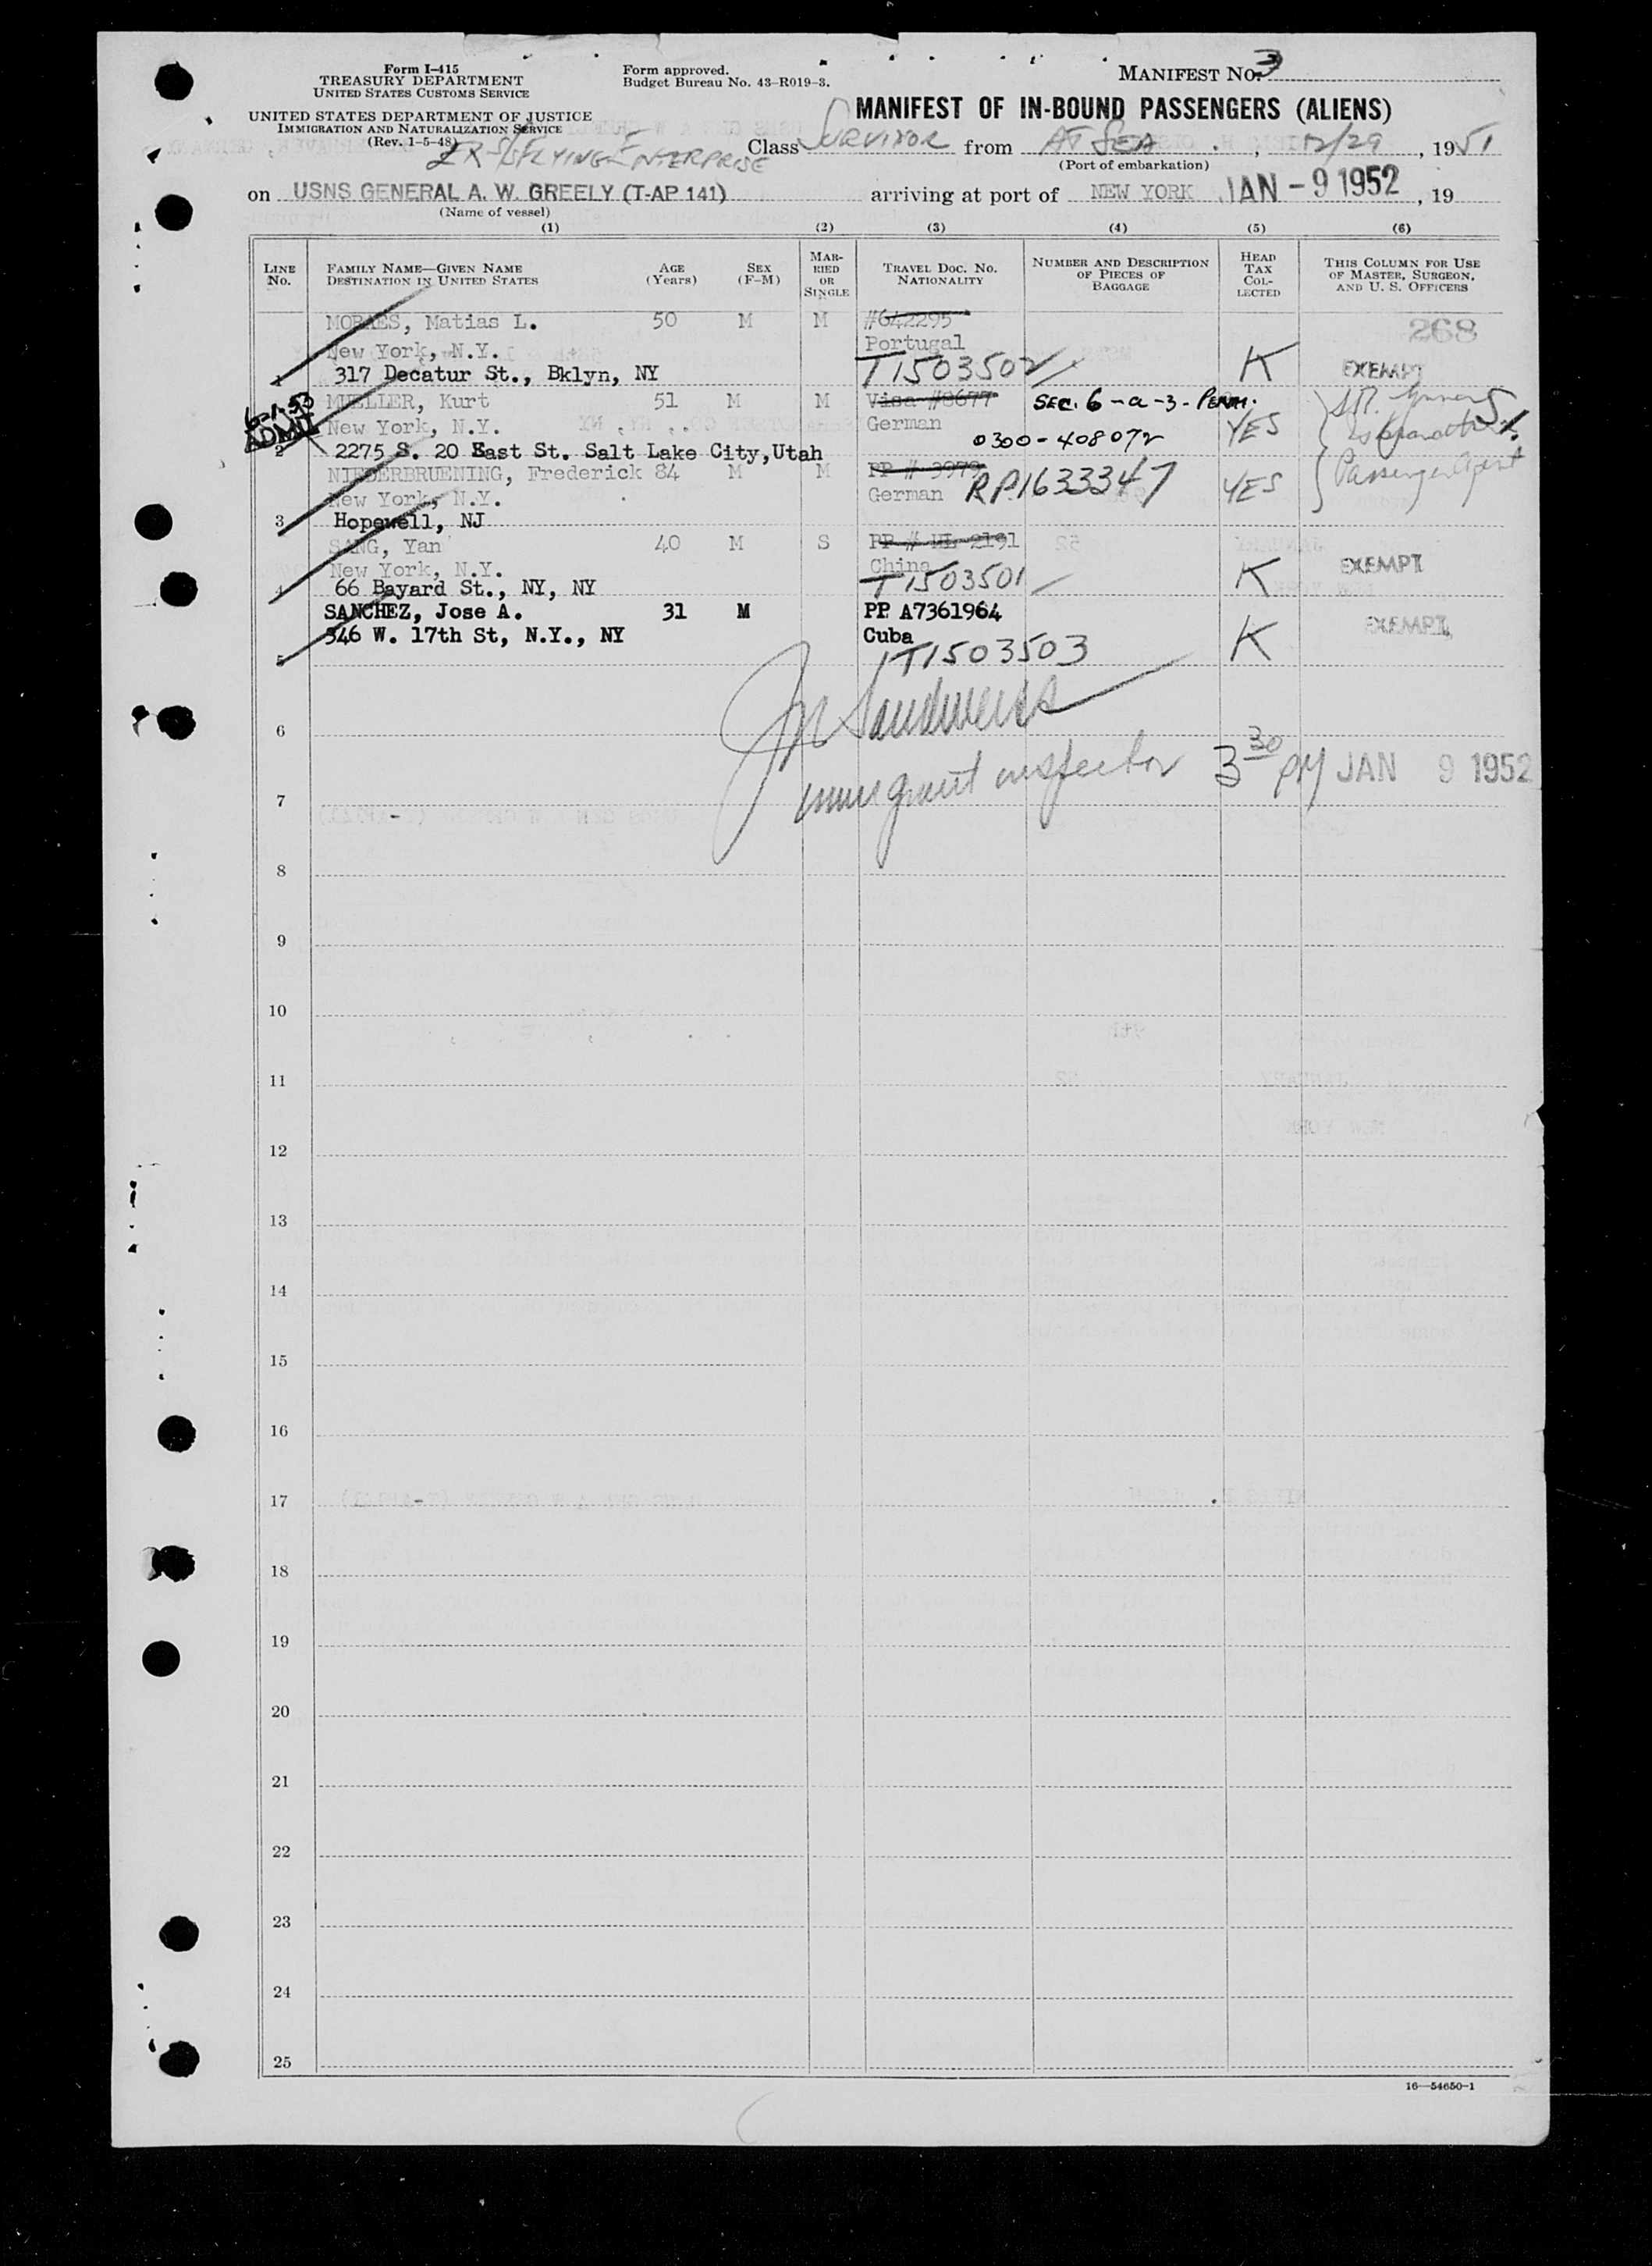 Form I-415
TREASURY DEPARTMENT
UNITED STATES CUSTOMS SERVICE
UNITED STATES DEPARTMENT OF JUSTICE
IMMIGRATION AND NATURALIZATION SERVICE
(Rev. 1-5-48)
Form approved.
Budget Bureau No. 43-R019-3.
MANIFEST NO. 3
MANIFEST OF IN-BOUND PASSENGERS (ALIENS)
EX S/S FLYING ENTERPRISE
Class SURVIVOR from AT SEA, 12/29, 1951
(Port of embarkation)
on USNS GENERAL A. W. GREELY (T-AP 141) arriving at port of NEW YORK JAN -9 1952, 19
(Name of vessel)
(1) (2) (3) (4) (5) (6)
LINE NO.
FAMILY NAME—GIVEN NAME
DESTINATION IN UNITED STATES
AGE (Years)
SEX (F-M)
MARRIED OR SINGLE
TRAVEL DOC. NO.
NATIONALITY
NUMBER AND DESCRIPTION OF PIECES OF BAGGAGE
HEAD TAX COLLECTED
THIS COLUMN FOR USE OF MASTER, SURGEON, AND U. S. OFFICERS
MORAES, Matias L. 50 M M #642295 268
New York, N.Y. Portugal
1 317 Decatur St., Bklyn, NY T1503502 K EXEMPT
6-1-53 MUELLER, Kurt 51 M M Visa #8677 SEC. 6-a-3-PERM.
ADMIT New York, N.Y. German YES
2 2275 S. 20 East St. Salt Lake City, Utah 0300-408072
NIEDERBRUENING, Frederick 84 M M PP # 3979
New York, N.Y. German RP1633347 YES Passenger Agent
3 Hopewell, NJ
SANG, Yan 40 M S PP # HL 2191
New York, N.Y. China EXEMPT
4 66 Bayard St., NY, NY T1503501 K
SANCHEZ, Jose A. 31 M PP. A7361964 EXEMPT
346 W. 17th St, N.Y., NY Cuba K
5 T1503503
6
immigrant inspector 3 30 PM JAN 9 1952
7
8
9
10
11
12
13
14
15
16
17
18
19
20
21
22
23
24
25
16—54650-1